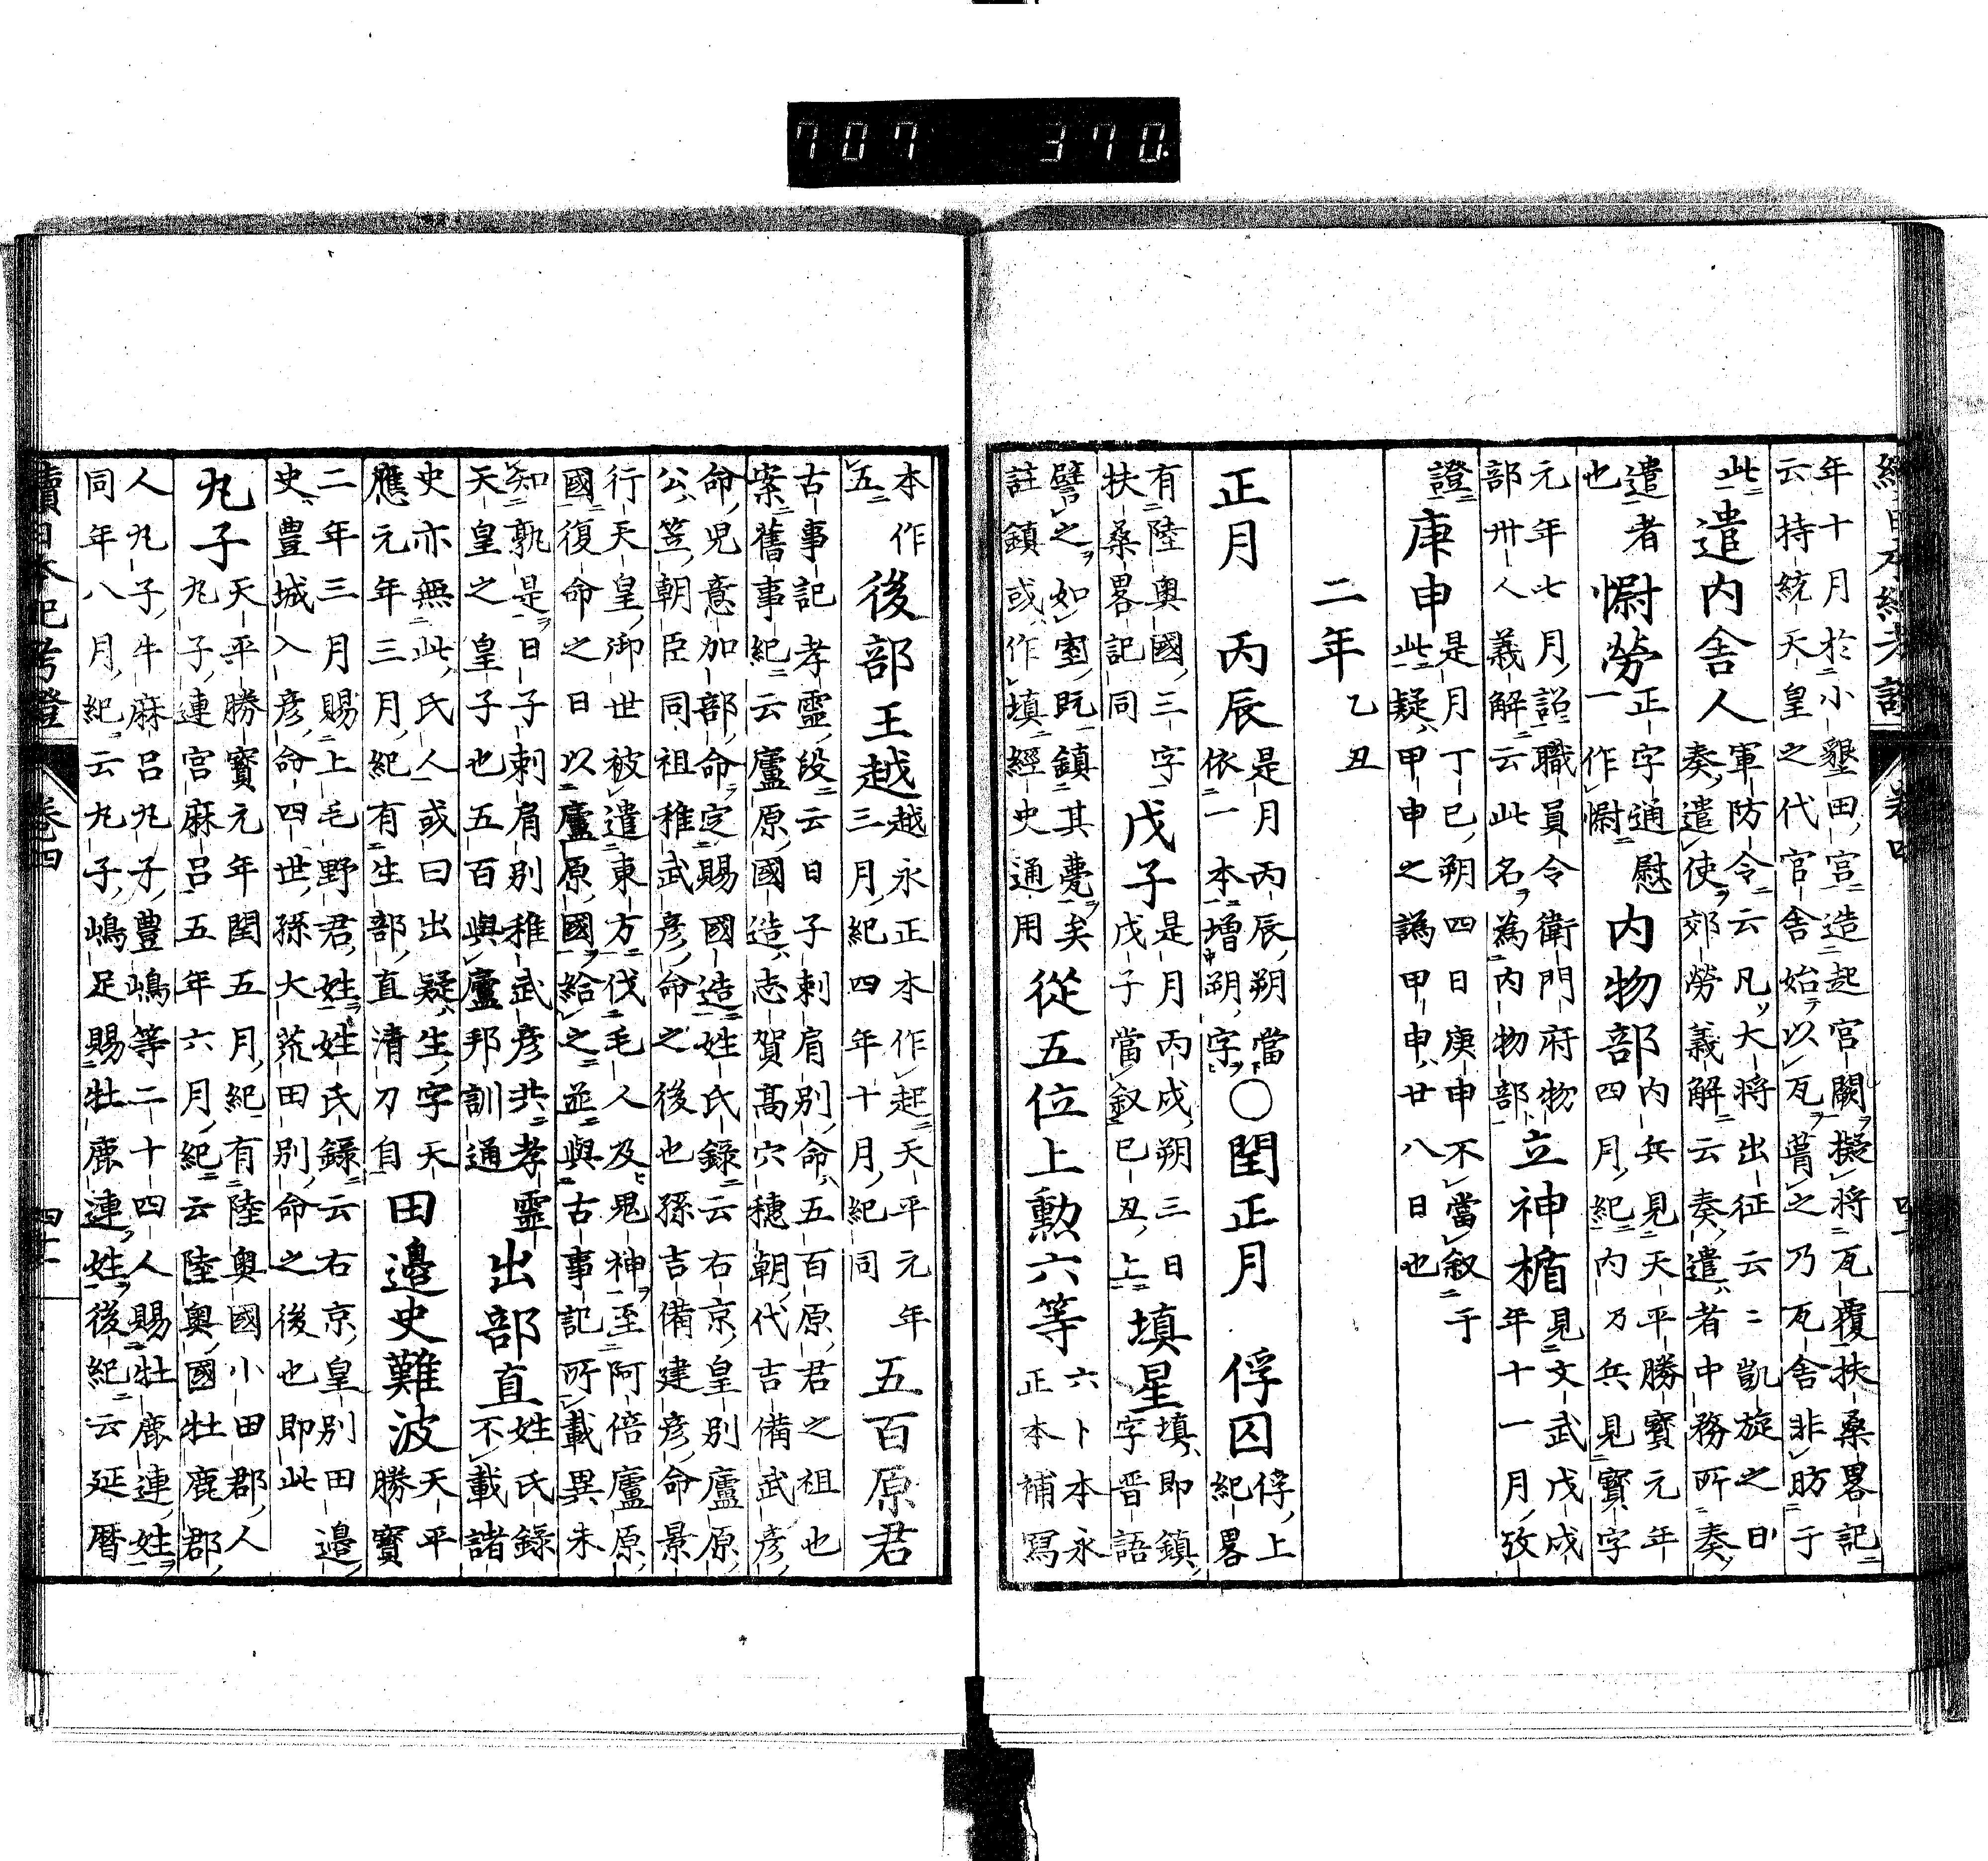 年十月於小墾田宮造起宮闕擬將瓦覆扶桑畧記
云持統天皇之代官舍始以瓦葺之乃瓦舍非昉于
此
遣内舍人
軍防令云凡大将出征云〻凱旋之日
奏遣使郊勞義解云奏遣者中務所奏
遣者
也
𢠢勞
正字通慰
一作𢠢
内物部
内兵見天平勝寶元年
四月紀内乃兵見寶字
元年七月詔職員令衛門府物
部卅人義解云此名為内物部
立神楯
見文武戊戌
年十一月攷
證
庚申
是月丁巳朔四日庚申不當叙于
此疑甲申之譌甲申廿八日也
二年
乙丑
正月　丙辰
是月丙辰朔當
依一本增朔字
〇閏正月　俘囚
俘上
紀畧
有陸奥國三字
扶桑畧記同
戊子
是月丙戌朔三日
戊子當叙巳丑上
填星
填即鎮
字晋語
譬之如室既鎮其甍矣
註鎮或作填經史通用
從五位上勲六等
六卜本永
正本補寫
本作
五
後部王越
越永正本作起天平元年
三月紀四年十月紀同
五百原君
古事記孝靈段云日子刺肩別命五百原君之祖也
案舊事紀云廬原國造志賀高穴穂朝代吉備武彦
命兒意加部命定賜國造姓氏録云右京皇別廬原
公笠朝臣同祖稚武彦命之後也孫吉備建彦命景
行天皇御世被遣東方伐毛人及鬼神至阿倍廬原
國復命之日以廬原國給之並與古事記所載異未
知孰是日子刺肩別稚武彦共孝靈
天皇之皇子也五百與廬邦訓通
出部直
姓氏録
不載諸
史亦無此氏人或曰出疑生字天
應元年三月紀有生部直清刀自
田邉史難波
天平
勝寶
二年三月賜上毛野君姓姓氏録云右京皇別田邉
史豊城入彦命四世孫大荒田別命之後也即此
丸子
天平勝寶元年閏五月紀有陸奥國小田郡人
丸子連宮麻呂五年六月紀云陸奥國牡鹿郡
人丸子牛麻呂丸子豊嶋等二十四人賜牡鹿連姓
同年八月紀云丸子嶋足賜牡鹿連姓後紀云延暦
續日本紀考證　卷四
707　370.